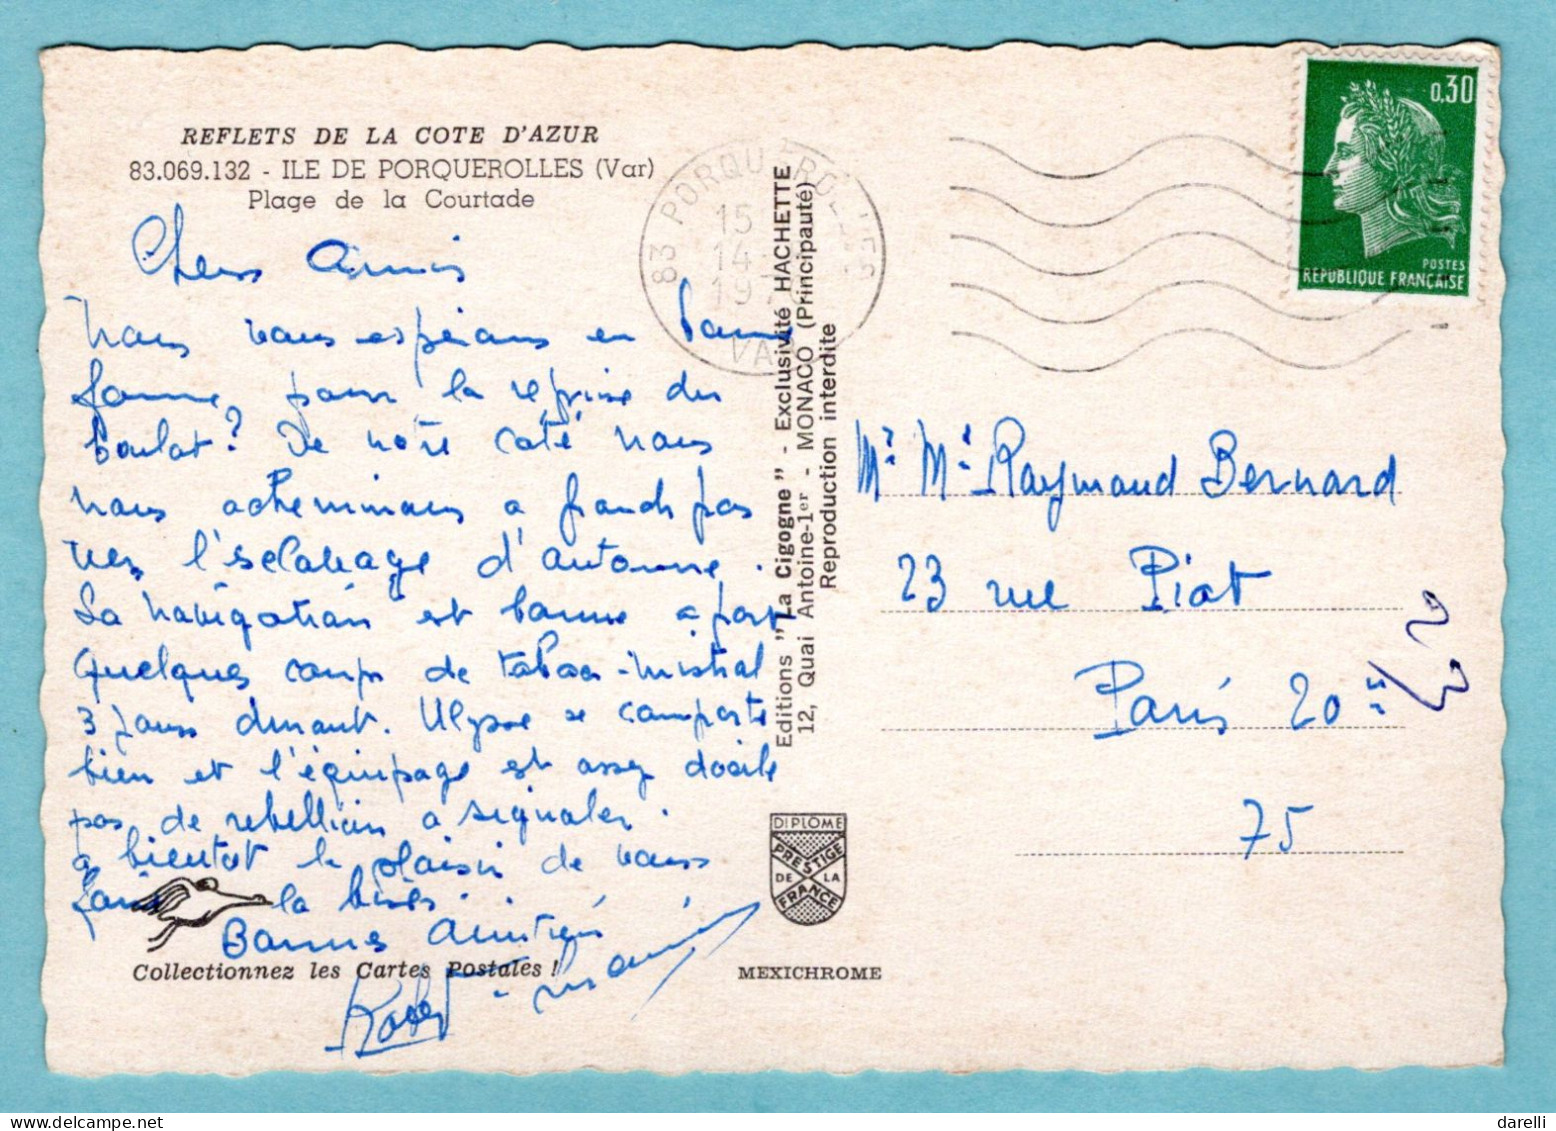 REFLETS DE LA COTE D'AZUR
83.069.132 - ILE DE PORQUEROLLES (Var)
Plage de la Courtade
Chers Amis
Nous vous espérons en bonne
forme, pour la reprise du
boulot? De notre coté nous
nous acheminons a grands pas
vers l'esclavage d'automne.
La navigation est bonne a part
quelques coups de tabac-mistral
3 jours durant. Ulysse se comporte
bien et l'équipage est assez docile
pas de rebellion a signaler.
a bientot le plaisir de vous
faire la bises.
Bonnes Amitiés
Robert
Collectionnez les Cartes Postales !
83 PORQUEROLLES
15
14
19
VAR
Editions "La Cigogne" - Exclusivité HACHETTE
12, Quai Antoine-1er - MONACO (Principauté)
Reproduction interdite
DIPLÔME
PRESTIGE
DE LA
FRANCE
MEXICHROME
0,30
POSTES
REPUBLIQUE FRANÇAISE
Mr Me Raymond Bernard
23 rue Piat
Paris 20e
75
23
darelli